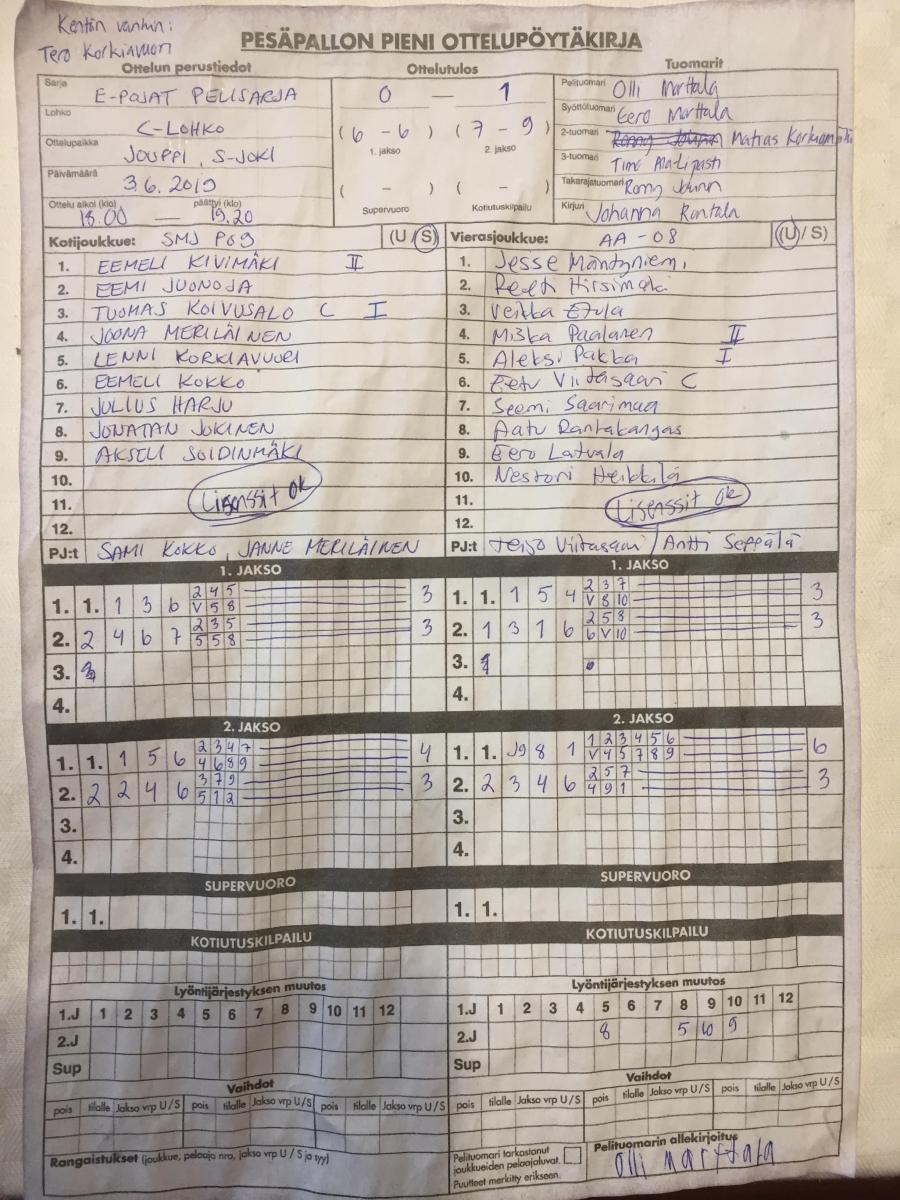 Kentän vanhin:
Tero Korkiavuori
PESÄPALLON PIENI OTTELUPÖYTÄKIRJA
Ottelun perustiedot
Sarja E-POJAT PELISARJA
Lohko C-LOHKO
Ottelupaikka JOUPPI, S-JOKI
Päivämäärä 3.6.2019
Ottelu alkoi (klo) päättyi (klo)
18.00 — 19.20
Ottelutulos
0 — 1
(6 - 6) (7 - 9)
1. jakso 2. jakso
( - ) ( - )
Supervuoro Kotiutuskilpailu
Tuomarit
Pelituomari Olli Marttala
Syöttötuomari Eero Marttala
2-tuomari Matias
3-tuomari Timo
Takarajatuomari Romy
Kirjuri Johanna Rantala
Kotijoukkue: SMJ P09 (U / S)
1. EEMELI KIVIMÄKI II
2. EEMI JUONOJA
3. TUOMAS KOIVUSALO C I
4. JOONA MERILÄINEN
5. LENNI KORKIAVUORI
6. EEMELI KOKKO
7. JULIUS HARJU
8. JONATAN JOKINEN
9. AKSELI SOIDINMÄKI
10.
11. Lisenssit ok
12.
PJ:t SAMI KOKKO, JANNE MERILÄINEN
Vierasjoukkue: AA-08 (U / S)
1. Jesse Mäntyniemi
2. Peeti Hirsimäki
3. Veikka
4. Miska Paalanen II
5. Aleksi Pakka I
6. Eetu Viitasaari C
7. Seemi Saarimaa
8. Aatu Rantakangas
9. Eero Latvala
10. Nestori Heikkilä
11. Lisenssit ok
12.
PJ:t Teijo Viitasaari / Antti Seppälä
1. JAKSO
1. 1. 1 3 6 2 4 5 3
V 5 8
2. 2 4 6 7 2 3 5 3
5 5 8
3.
4.
1. JAKSO
1. 1. 1 5 4 2 3 7 3
V 8 10
2. 1 3 1 6 2 5 8 3
6 V 10
3.
4.
2. JAKSO
1. 1. 1 5 6 2 3 4 7 4
4 6 8 9
2. 2 2 4 6 3 7 9 3
5 1 2
3.
4.
2. JAKSO
1. 1. J9 8 1 1 2 3 4 5 6 6
V 4 5 7 8 9
2. 2 3 4 6 2 5 7 3
4 9 1
3.
4.
SUPERVUORO
1. 1.
SUPERVUORO
1. 1.
KOTIUTUSKILPAILU
KOTIUTUSKILPAILU
Lyöntijärjestyksen muutos
1.J 1 2 3 4 5 6 7 8 9 10 11 12
2.J
Sup
Lyöntijärjestyksen muutos
1.J 1 2 3 4 5 6 7 8 9 10 11 12
2.J 8 5 10 9
Sup
Vaihdot
pois tilalle Jakso vrp U / S pois tilalle Jakso vrp U / S pois tilalle Jakso vrp U / S
Vaihdot
pois tilalle Jakso vrp U / S pois tilalle Jakso vrp U / S pois tilalle Jakso vrp U / S
Rangaistukset (joukkue, pelaaja nro, jakso vrp U / S ja tyy)
Pelituomari tarkastanut
joukkueiden pelaajaluvat.
Puutteet merkitty erikseen.
Pelituomarin allekirjoitus
Olli Marttala